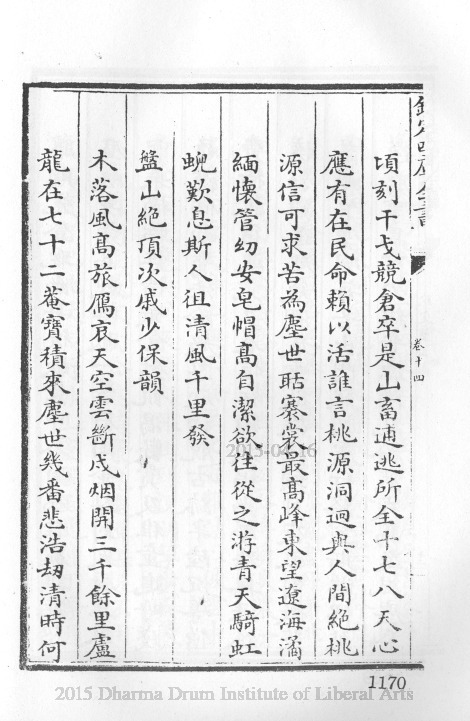 欽定四庫全書
卷十四
頃刻干戈競倉卒是山畜逋逃所全十七八天心
應有在民命賴以活誰言桃源洞迥與人間絶桃
源信可求苦為塵世聒褰裳最高峰東望遼海濶
緬懷管幼安皂帽髙自潔欲往從之游青天騎虹
蜺歎息斯人徂清風千里發
盤山絶頂次戚少保韻
木落風髙旅鴈哀天空雲斷戍烟開三千餘里盧
龍在七十二菴寶積來塵世幾番悲浩刼清時何
1170
2015-04-16
2015 Dharma Drum Institute of Liberal Arts